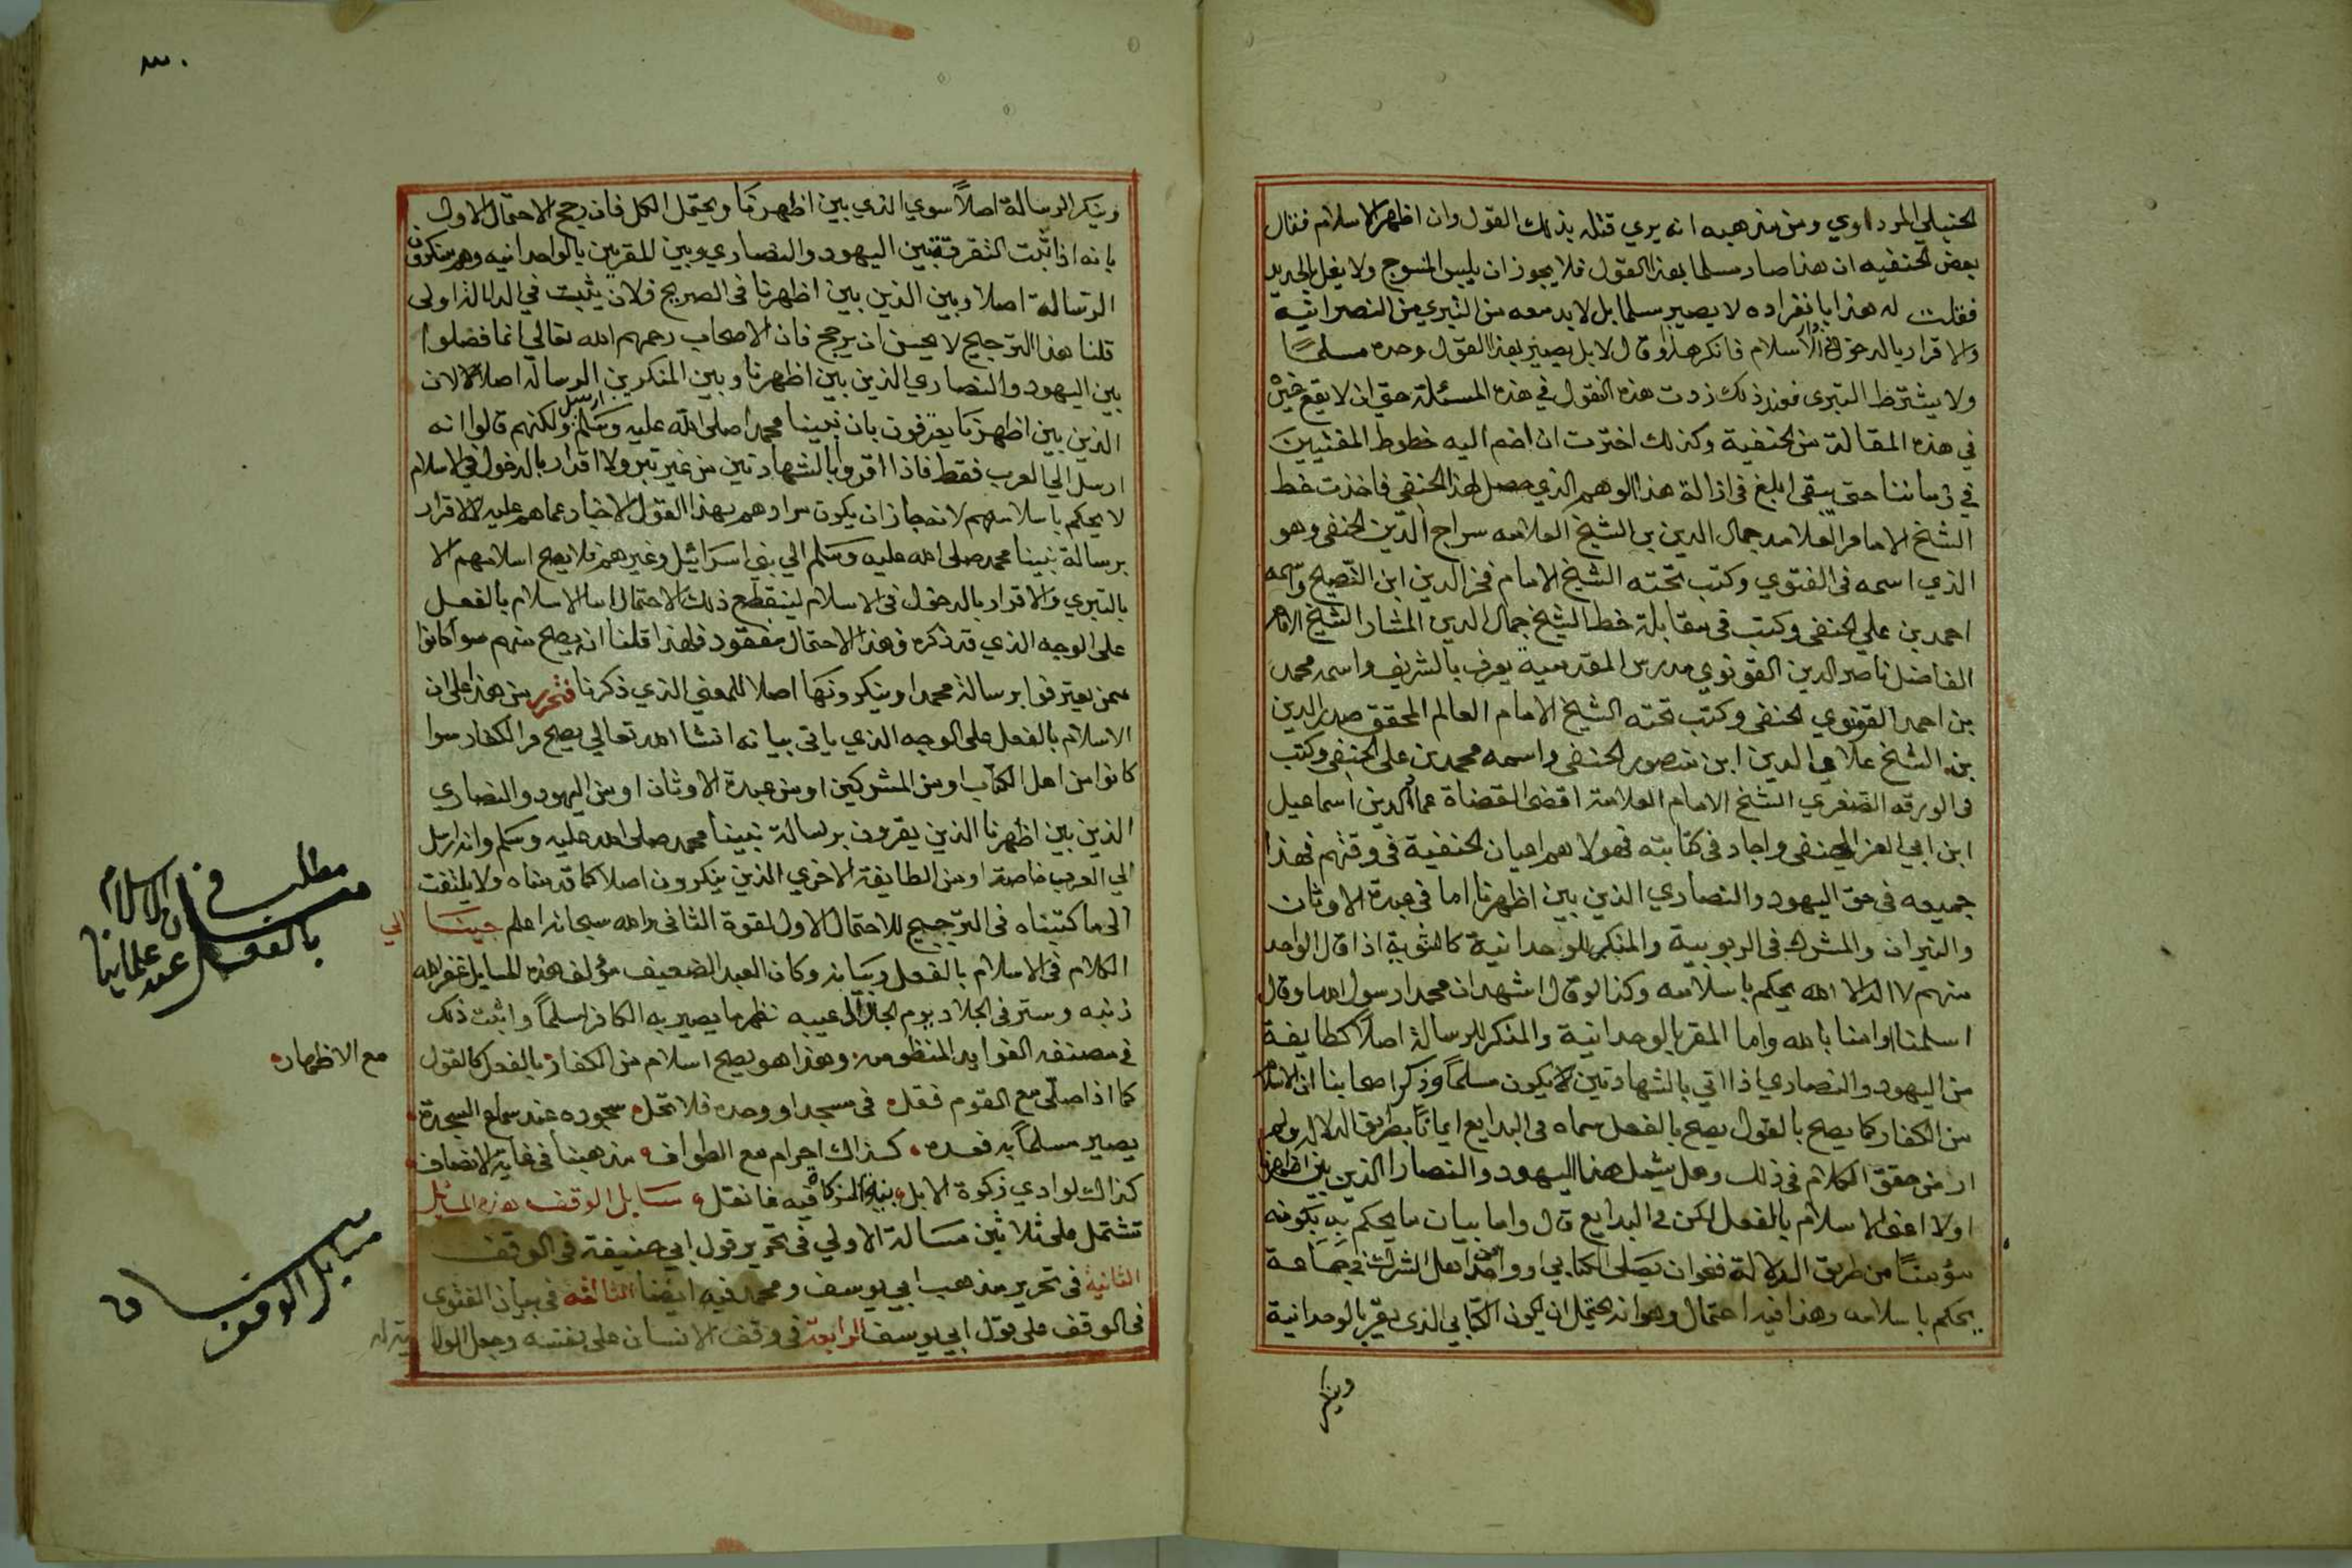 الحنبلي المرداوي ومن مذهبه انه يري قتله بذلك القول وان اظهر الاسلام فقال
بعض الحنفيه ان هذا صار مسلما بهذا القول فلا يجوز ان يلبس المنسوج ولا يغل بالحديد
فقلت له هذا بانفراده لا يصير مسلما بل لا بد معه من التبري من النصرانية
والاقرار بالدخول في الاسلام فانكر هذا وقال لا بل يصير بهذا القول وحده مسلما
ولا يشترط التبري فعند ذلك زدت هذه النقول في هذه المسئلة حتي ان لا يقع غيره
في هذه المقالة من الحنفية وكذلك اخترت ان اضم اليه خطوط المفتيين
في زماننا حتي يبقي ابلغ في ازالة هذا الوهم الذي حصل لهذا الحنفي فاخذت خط
الشيخ الامام العلامه جمال الدين بن الشيخ العلامه سراج الدين الحنفي وهو
الذي اسمه في الفتوي وكتب تحته الشيخ الامام فخر الدين ابن الفصيح واسمه
احمد بن علي الحنفي وكتب في مقابلة خط الشيخ جمال الدين المشار الشيخ الامام
الفاضل ناصر الدين القونوي مدرس المقدمية يعرف بالشريف واسمه محمد
بن احمد القونوي الحنفي وكتب تحته الشيخ الامام العالم المحقق صدر الدين
بن الشيخ علاي الدين ابن منصور الحنفي واسمه محمد بن علي الحنفي وكتب
في الورقه الصغري الشيخ الامام العلامة اقضي القضاة عماد الدين اسماعيل
ابن ابي العز الحنفي واجاد في كتابته فهولا هم اعيان الحنفية في وقتهم فهذا
جميعه في حق اليهود والنصاري الذين بين اظهرنا اما في عبدة الاوثان
والنيران والمشرك في الربوبية والمنكر للوحدانية كالثنوية اذا قال الواحد
منهم لا اله الا الله يحكم باسلامه وكذا لو قال اشهد ان محمدا رسول الله او قال
اسلمنا او امنا بالله واما المقر بالوحدانية والمنكر للرسالة اصلا كطايفة
من اليهود والنصاري اذا اتي بالشهادتين لا يكون مسلما وذكر اصحابنا ان الاسلام
من الكفار كما يصح بالقول يصح بالفعل سماه في البدايع ايمانا بطريق الدلالة ولم
ار من حقق الكلام في ذلك وهل يشمل هذا اليهود والنصارا الذين بين اظهرنا
اولا اعني الاسلام بالفعل لكن في البدايع قال واما بيان ما يحكم به بكونه
مؤمنا من طريق الدلالة فنحو ان يصلي الكتابي او واحد من اهل الشرك في جماعة
يحكم باسلامه وهذا فيه احتمال وهو انه يحتمل ان يكون الكتابي الذي يقر بالوحدانية
وينكر
٣٠
وينكر الرسالة اصلا سوي الذي بين اظهرنا ويحتمل الكل فان رجح الاحتمال الاول
بانه اذا ثبت التفرقة بين اليهود والنصاري وبين للمقرين بالواحدانيه وهم منكرون
الرسالة اصلا وبين الذين بين اظهرنا في الصريح فلان يثبت في الدلالة اولي
قلنا هذا الترجيح لا يحسن ان يرجح فان الاصحاب رحمهم الله تعالي انما فصلوا
بين اليهود والنصاري الذين بين اظهرنا وبين المنكرين الرسالة اصلا لان
الذين بين اظهرنا يعترفون بان نبينا محمدا صلى الله عليه وسلم ارسل ولكنهم قالوا انه
ارسل الي العرب فقط فاذا اقروا بالشهادتين من غير تبر ولا اقرار بالدخول في الاسلام
لا يحكم باسلامهم لانه جاز ان يكون مرادهم بهذا القول الاخبار عما هم عليه الاقرار
برسالة نبينا محمد صلى الله عليه وسلم الي بني اسرائيل وغيرهم فلا يصح اسلامهم الا
بالتبري والاقرار بالدخول في الاسلام لينقطع ذلك الاحتمال اما الاسلام بالفعل
علي الوجه الذي قد ذكره فهذا الاحتمال مفقود فلهذا قلنا انه يصح منهم سوا كانوا
ممن يعترفوا برسالة محمد او ينكرونها اصلا للمعني الذي ذكرنا فتحرر من هذا علي ان
الاسلام بالفعل علي الوجه الذي ياتي بيانه انشا الله تعالي يصح من الكفار سوا
كانوا من اهل الكتاب او من المشركين او من عبدة الاوثان او من اليهود والنصاري
الذين بين اظهرنا الذين يقرون برسالة نبينا محمد صلى الله عليه وسلم وانه ارسل
الي العرب خاصة او من الطايفة الاخري الذين ينكرون اصلا كما قدمناه ولا يلتفت
الي ما كتبناه في الترجيح للاحتمال الاول لقوة الثاني والله سبحانه اعلم جينا الي
الكلام في الاسلام بالفعل وبيانه وكان العبد الضعيف مؤلف هذه المسايل غفر الله
ذنبه وستر في الجلاد يوم عيبه نظم ما يصير به الكافر مسلما واثبت ذلك
في مصنفه الفوايد المنظومه وهذا هو يصح اسلام من الكفار بالفعل كالقول مع الاظهار
كما اذا صلي مع القوم فقل في مسجد او وحده فلا تخل سجوده عند سماع السجدة
يصير مسلما به فعده كذاك احرام مع الطواف مذهبنا في غاية الانصاف
كذاك لو ادي زكوة الابل فيه فانقل مسايل الوقف هذه المسايل
تشتمل علي ثلاثين مسالة الاولي في تحرير قول ابي حنيفة في الوقف
الثانية في تحرير مذهب ابي يوسف ومحمد فيه ايضا الثالثة في بيان الفتوي
في الوقف علي قول ابي يوسف الرابعة في وقف الانسان علي نفسه وجعل الولا
مطلب في
الاسلام
بالفعل
عند علمائنا
مسايل الوقف